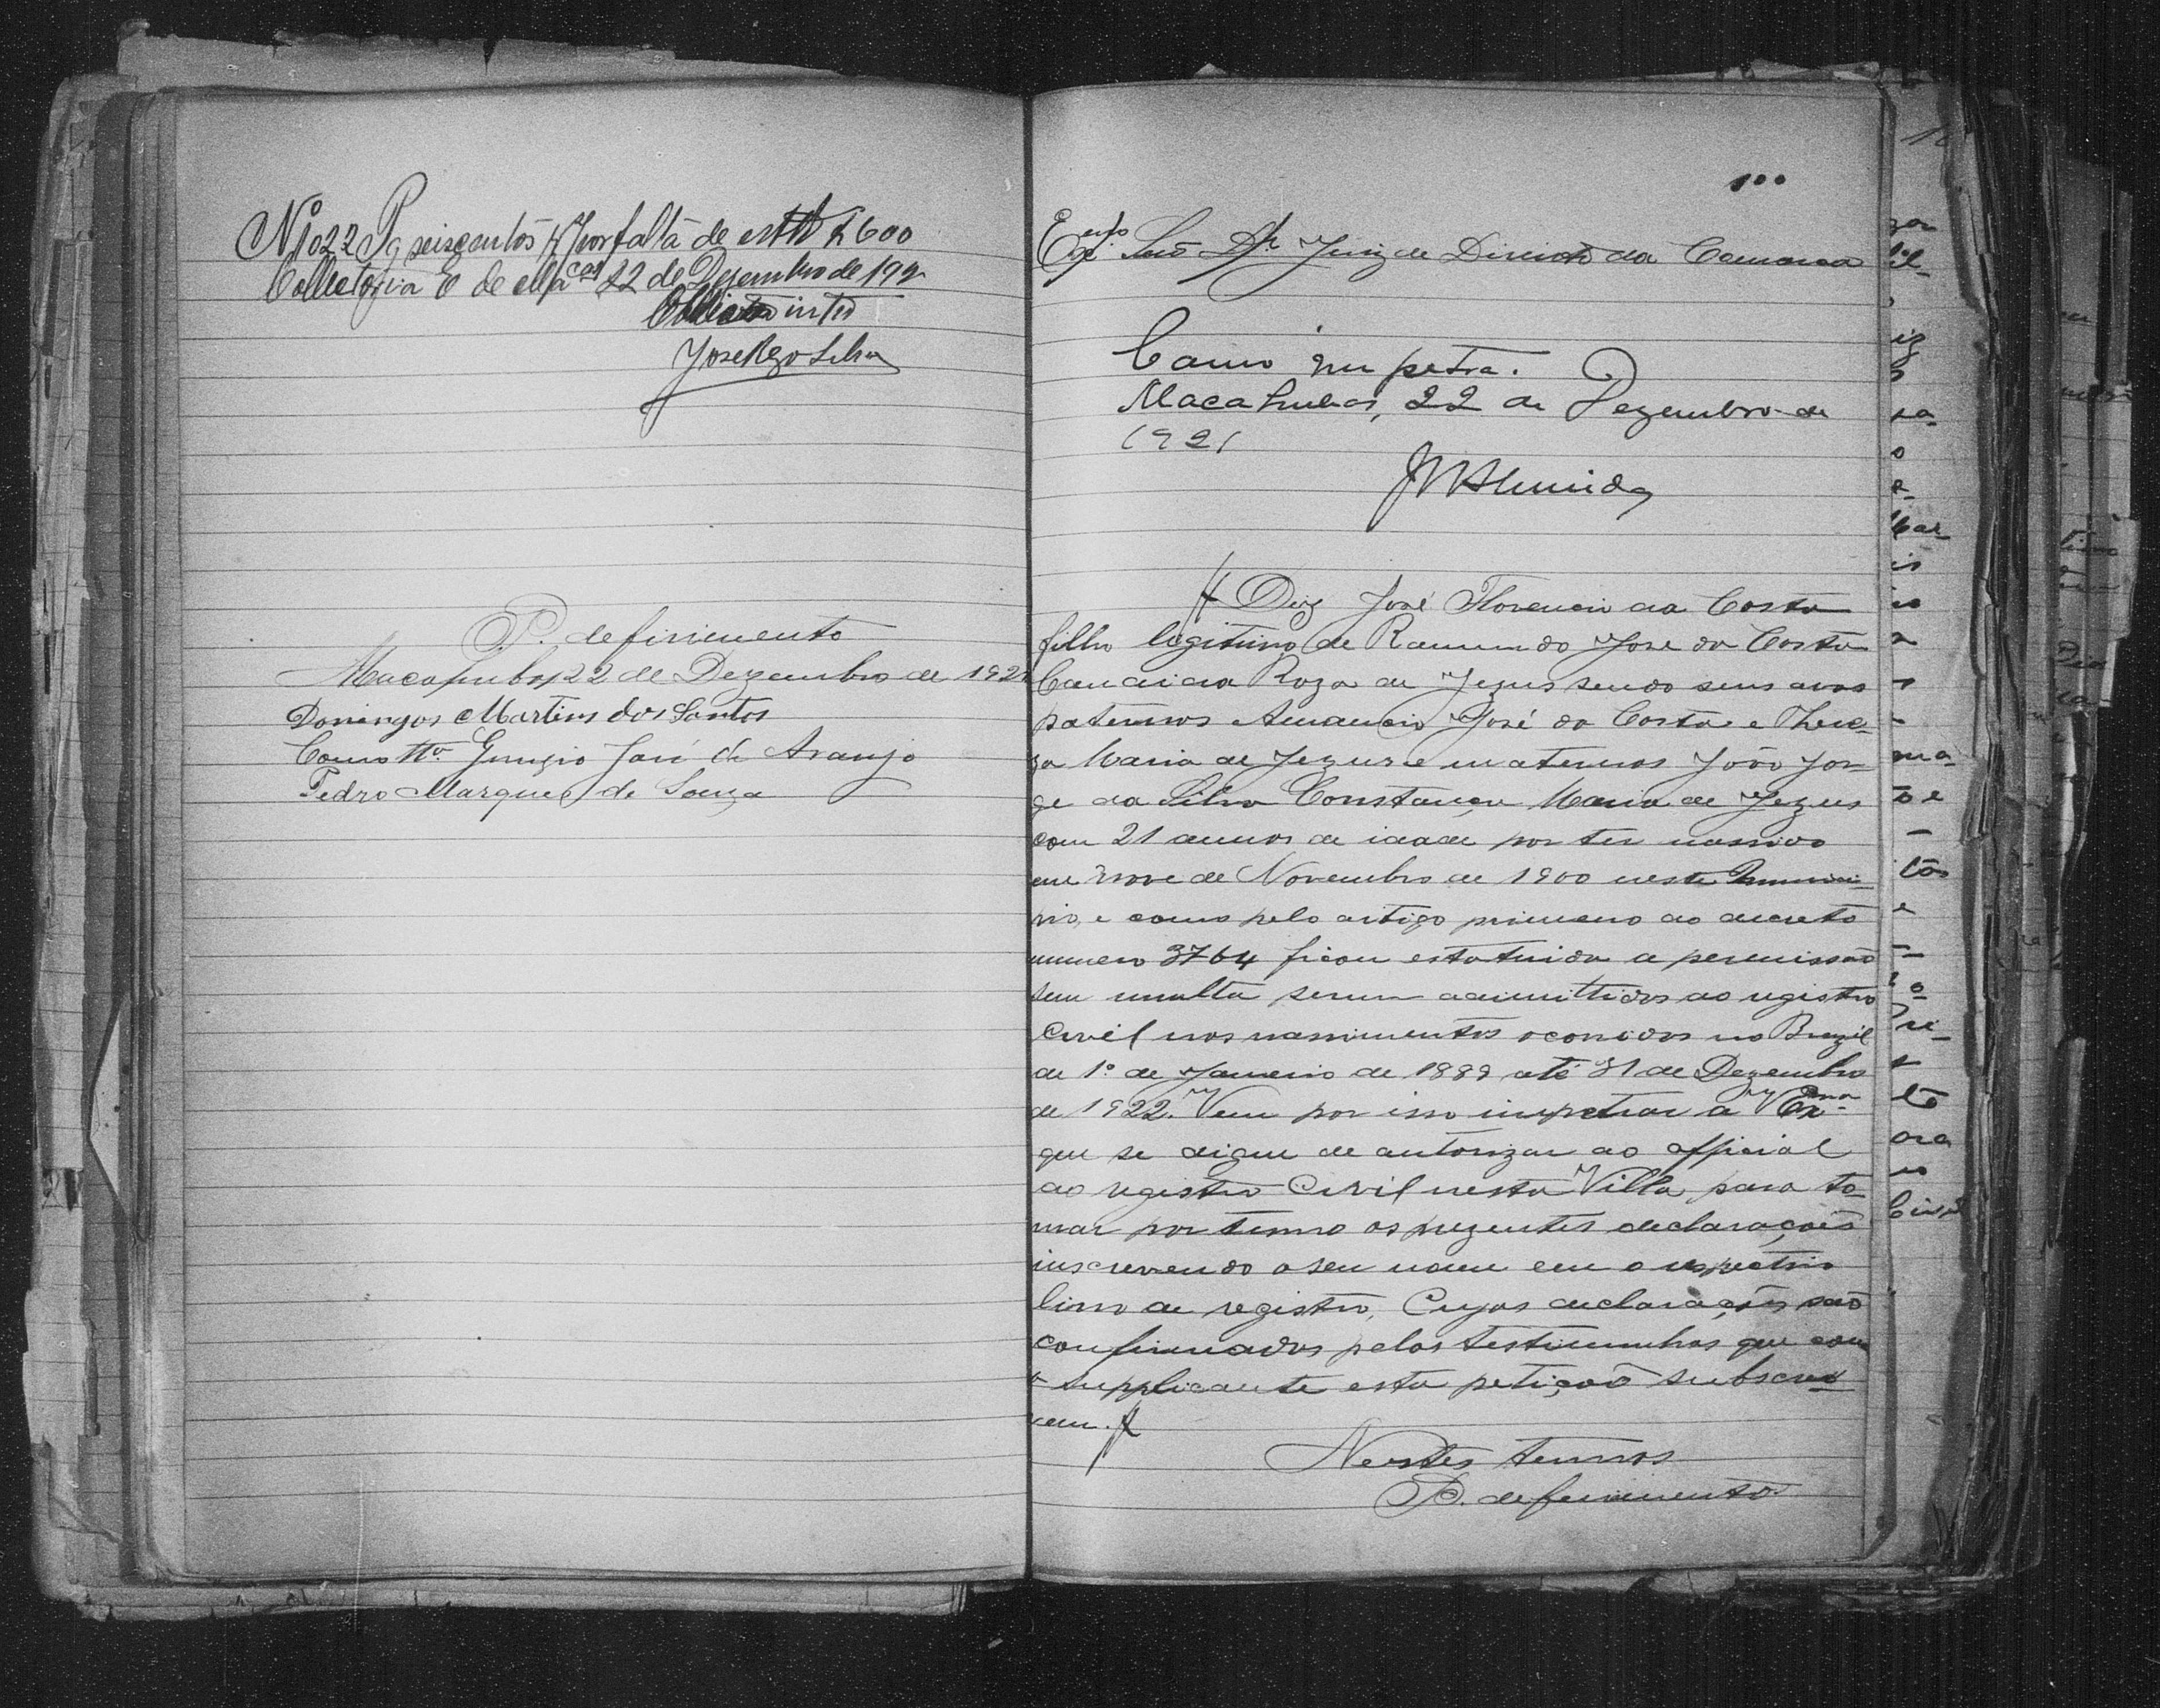 Nº 1022 Pg seiscentos rs por falta de estto $600
Collectoria E de Macas 22 de Dezembro de 192
Collector intº
José Rego Silva
P. defirimento
Macahubas 22 de Dezembro de 1921
Domingos Martins dos Santos
Como tta. José de Araujo
Pedro Marques de Souza
100
Exmo Snr Dr Juiz de Direito da Comarca
Como impetra.
Macahubas, 22 de Dezembro de
1921
Almeida
Diz José Florencio da Costa
filho legitimo de Raimundo José da Costa
Candida Roza de Jezus sendo seus avos
paternos Amancio José da Costa e There-
za Maria de Jezus e maternos João Jor-
ge da Silva Constança Maria de Jezus
com 21 annos de idade por ter nascido
em nove de Novembro de 1900 neste Munici-
pio, e como pelo artigo primeiro do decreto
numero 3764 ficou estatuida a permissão
sem multa serem admittidos ao registro
Civil nos nascimentos occoridos no Brazil
de 1º de Janeiro de 1889 até 31 de Dezembro
de 1922. Vem por isso impetrar a V Exma
que se digne de autorizar ao official
do registro Civil nesta Villa, para to-
mar por termo as prezentes declarações
inscrevendo o seu nome em o respectivo
livro de registro, Cujas declarações são
confirmadas pelas testimunhas que com
o supplicante esta petição subscre-
vem.
Nestes termos
P. deferimento